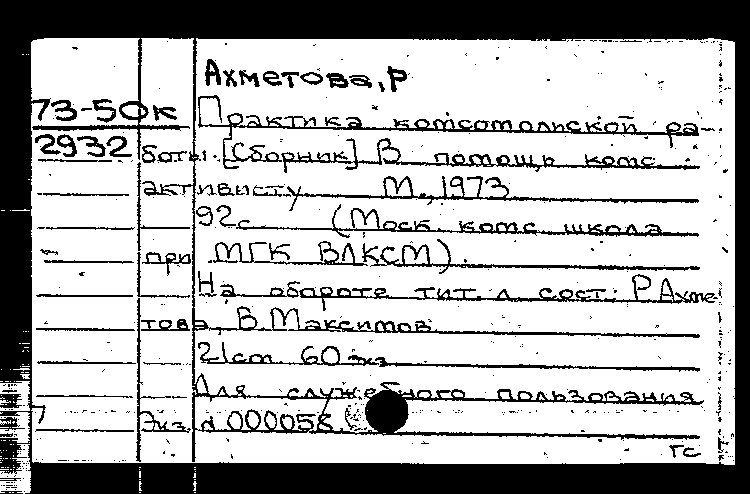 Ахметова, Р
73-50к Практика комсомольской ра-
2932 боты. [Сборник] В помощь комс.
активисту М., 1973
92с (Моск. комс. школа
при МГК ВЛКСМ).
На обороте тит. л сост: Р.Ахме
това, В.Максимов
21cm 60 экз
Для служебного пользования
Экз. № 000058
гс